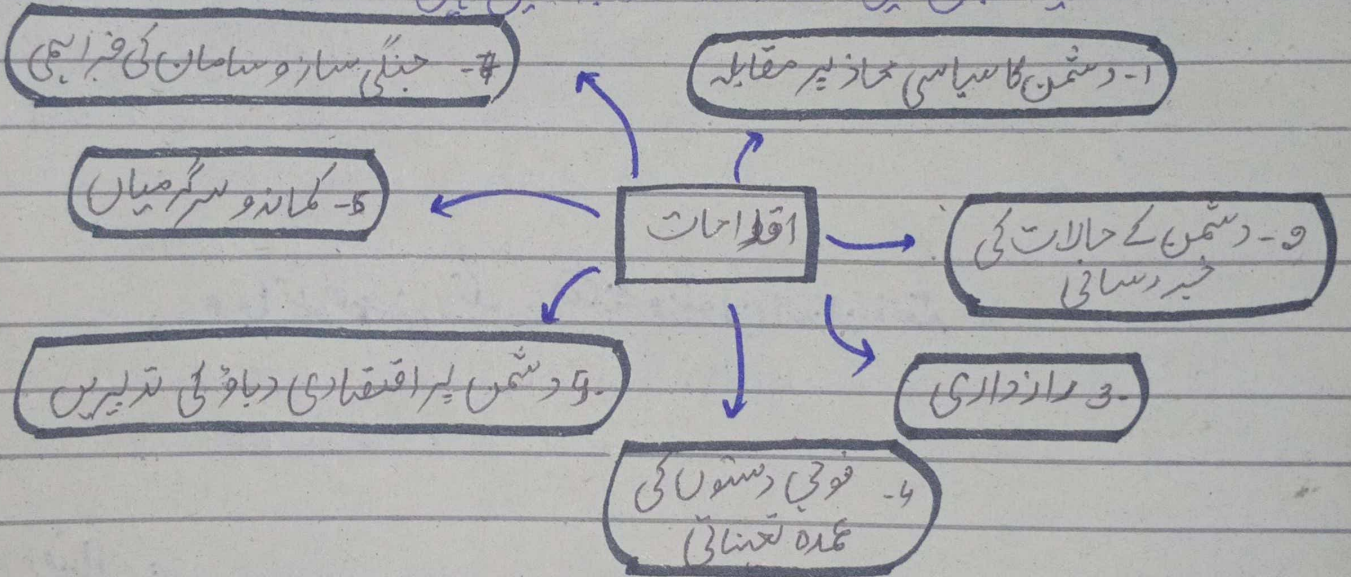 اقدامات
1- دشمن کا سیاسی محاذ پر مقابلہ
2- دشمن کے حالات کی
خبر رسانی
3- رازداری
4- فوجی دستوں کی
عمدہ تعیناتی
5- دشمن پر اقتصادی دباؤ کی تدبیریں
6- کمانڈو سرگرمیاں
7- جنگی ساز و سامان کی فراہمی